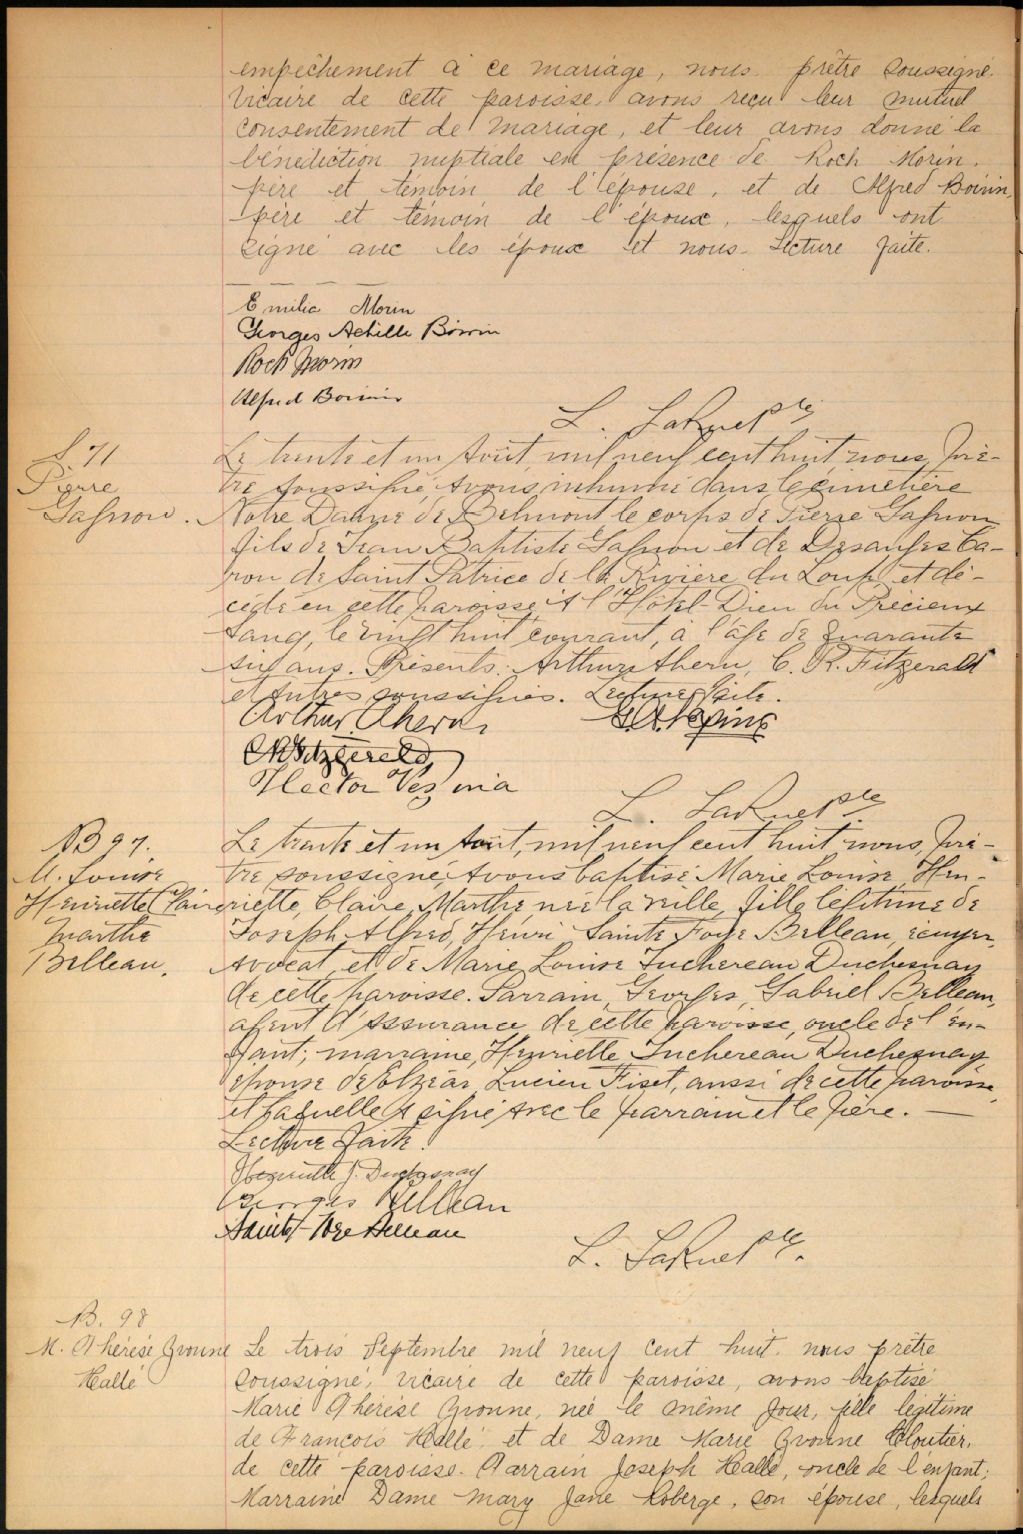 empêchement à ce mariage, nous prêtre soussigné
Vicaire de cette paroisse, avons reçu leur mutuel
consentement de mariage, et leur avons donné la
bénédiction nuptiale en présence de Roch Morin,
père et témoin de l'épouse, et de Alfred Boivin,
père et témoin de l'époux, lesquels ont
signé avec les époux et nous. Lecture faite.
Emilia Morin
Georges Achille Boivin
Roch Morin
Alfred Boivin
L. LaRue ptre
S 71
Pierre
Gagnon.
Le trente et un Août, mil neuf cent huit, nous, prê-
tre soussigné, avons inhumé dans le cimetière
Notre Dame de Belmont le corps de Pierre Gagnon
fils de Jean Baptiste Gagnon et de Desanges Ca-
ron de Saint Patrice de la Rivière du Loup, et dé-
cédé en cette paroisse, à l'Hôtel-Dieu du Précieux
Sang, le vingt huit courant, à l'âge de quarante
six ans. Présents: Arthur Ahern, C. R. Fitzgerald
et autres soussignés. Lecture faite.
Arthur Ahern
G.A. Lépine
C R Fitzgerald
Hector Vézina
L. LaRue ptre
B 97.
M. Louise
Henriette Claire
Marthe
Belleau.
Le trente et un Août, mil neuf cent huit nous, prê-
tre soussigné, avons baptisé Marie Louise, Hen-
riette, Claire, Marthe, née la veille, fille légitime de
Joseph Alfred, Henri Sainte Foye Belleau, écuyer,
Avocat, et de Marie Louise Juchereau Duchesnay
de cette paroisse. Parrain, Georges, Gabriel Belleau,
agent d'Assurance, de cette paroisse, oncle de l'en-
fant; marraine, Henriette Juchereau Duchesnay,
épouse de Elzéar, Lucien Fiset, aussi de cette paroisse,
et laquelle a signé avec le parrain et le père. —
Lecture faite.
Henriette J. Duchesnay
Georges Belleau
Sainte-Foye Belleau
L. LaRue ptre.
B. 98
M. Thérèse Yvonne
Hallé
Le trois Septembre mil neuf cent huit, nous prêtre
soussigné, vicaire de cette paroisse, avons baptisé
Marie Thérèse Yvonne, née le même jour, fille légitime
de François Hallé et de Dame Marie Yvonne Cloutier,
de cette paroisse. Parrain Joseph Hallé, oncle de l'enfant;
Marraine Dame Mary Jane Roberge, son épouse, lesquels